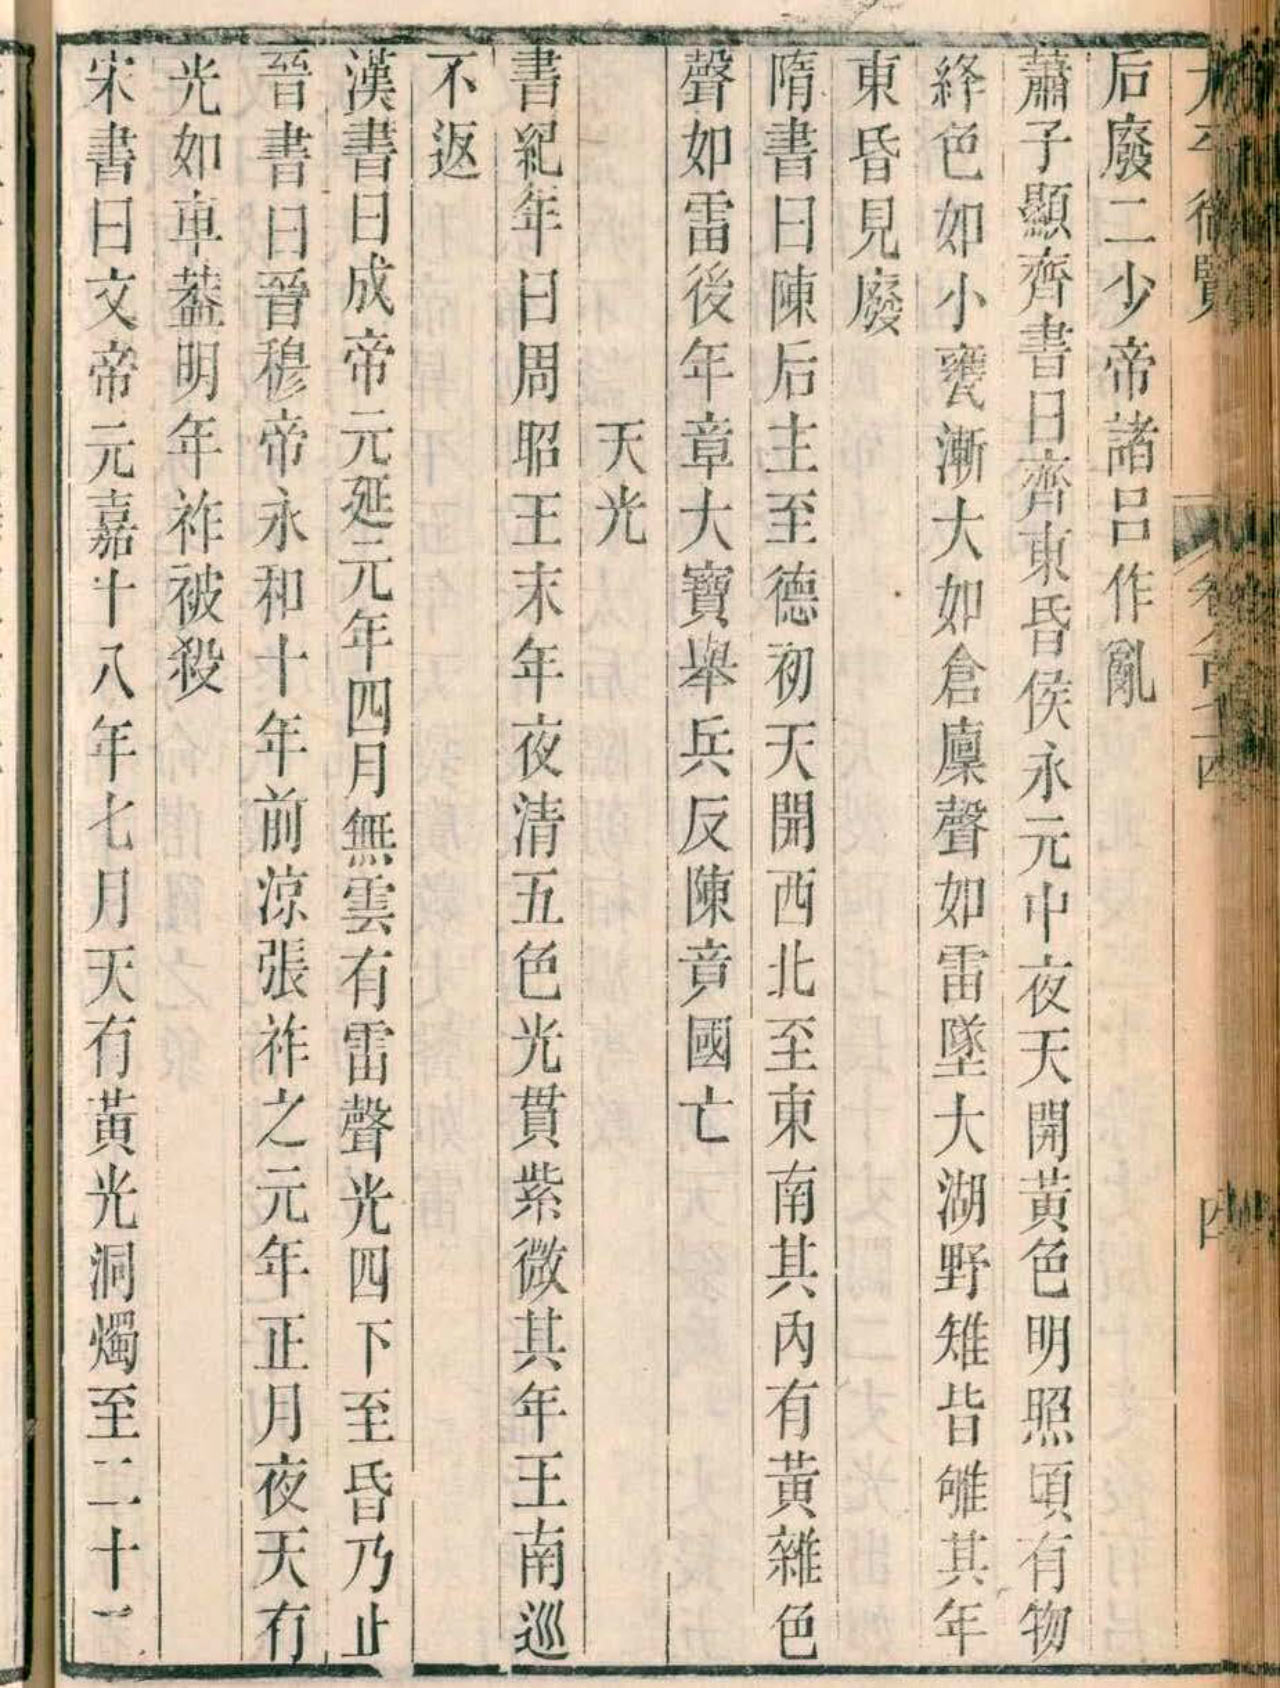 太平御覽
卷八百七十四
四
后廢二少帝諸呂作亂
蕭子顯齊書曰齊東昏侯永元中夜天開黃色明照頃有物
絳色如小甕漸大如倉廩聲如雷墜大湖野雉皆雊其年
東昏見廢
隋書曰陳后主至德初天開西北至東南其內有黃雜色
聲如雷後年章大寶舉兵反陳竟國亡
天光
書紀年曰周昭王末年夜清五色光貫紫微其年王南巡
不返
漢書曰成帝元延元年四月無雲有雷聲光四下至昏乃止
晉書曰晉穆帝永和十年前涼張祚之元年正月夜天有
光如車葢明年祚被殺
宋書曰文帝元嘉十八年七月天有黃光洞燭至二十一